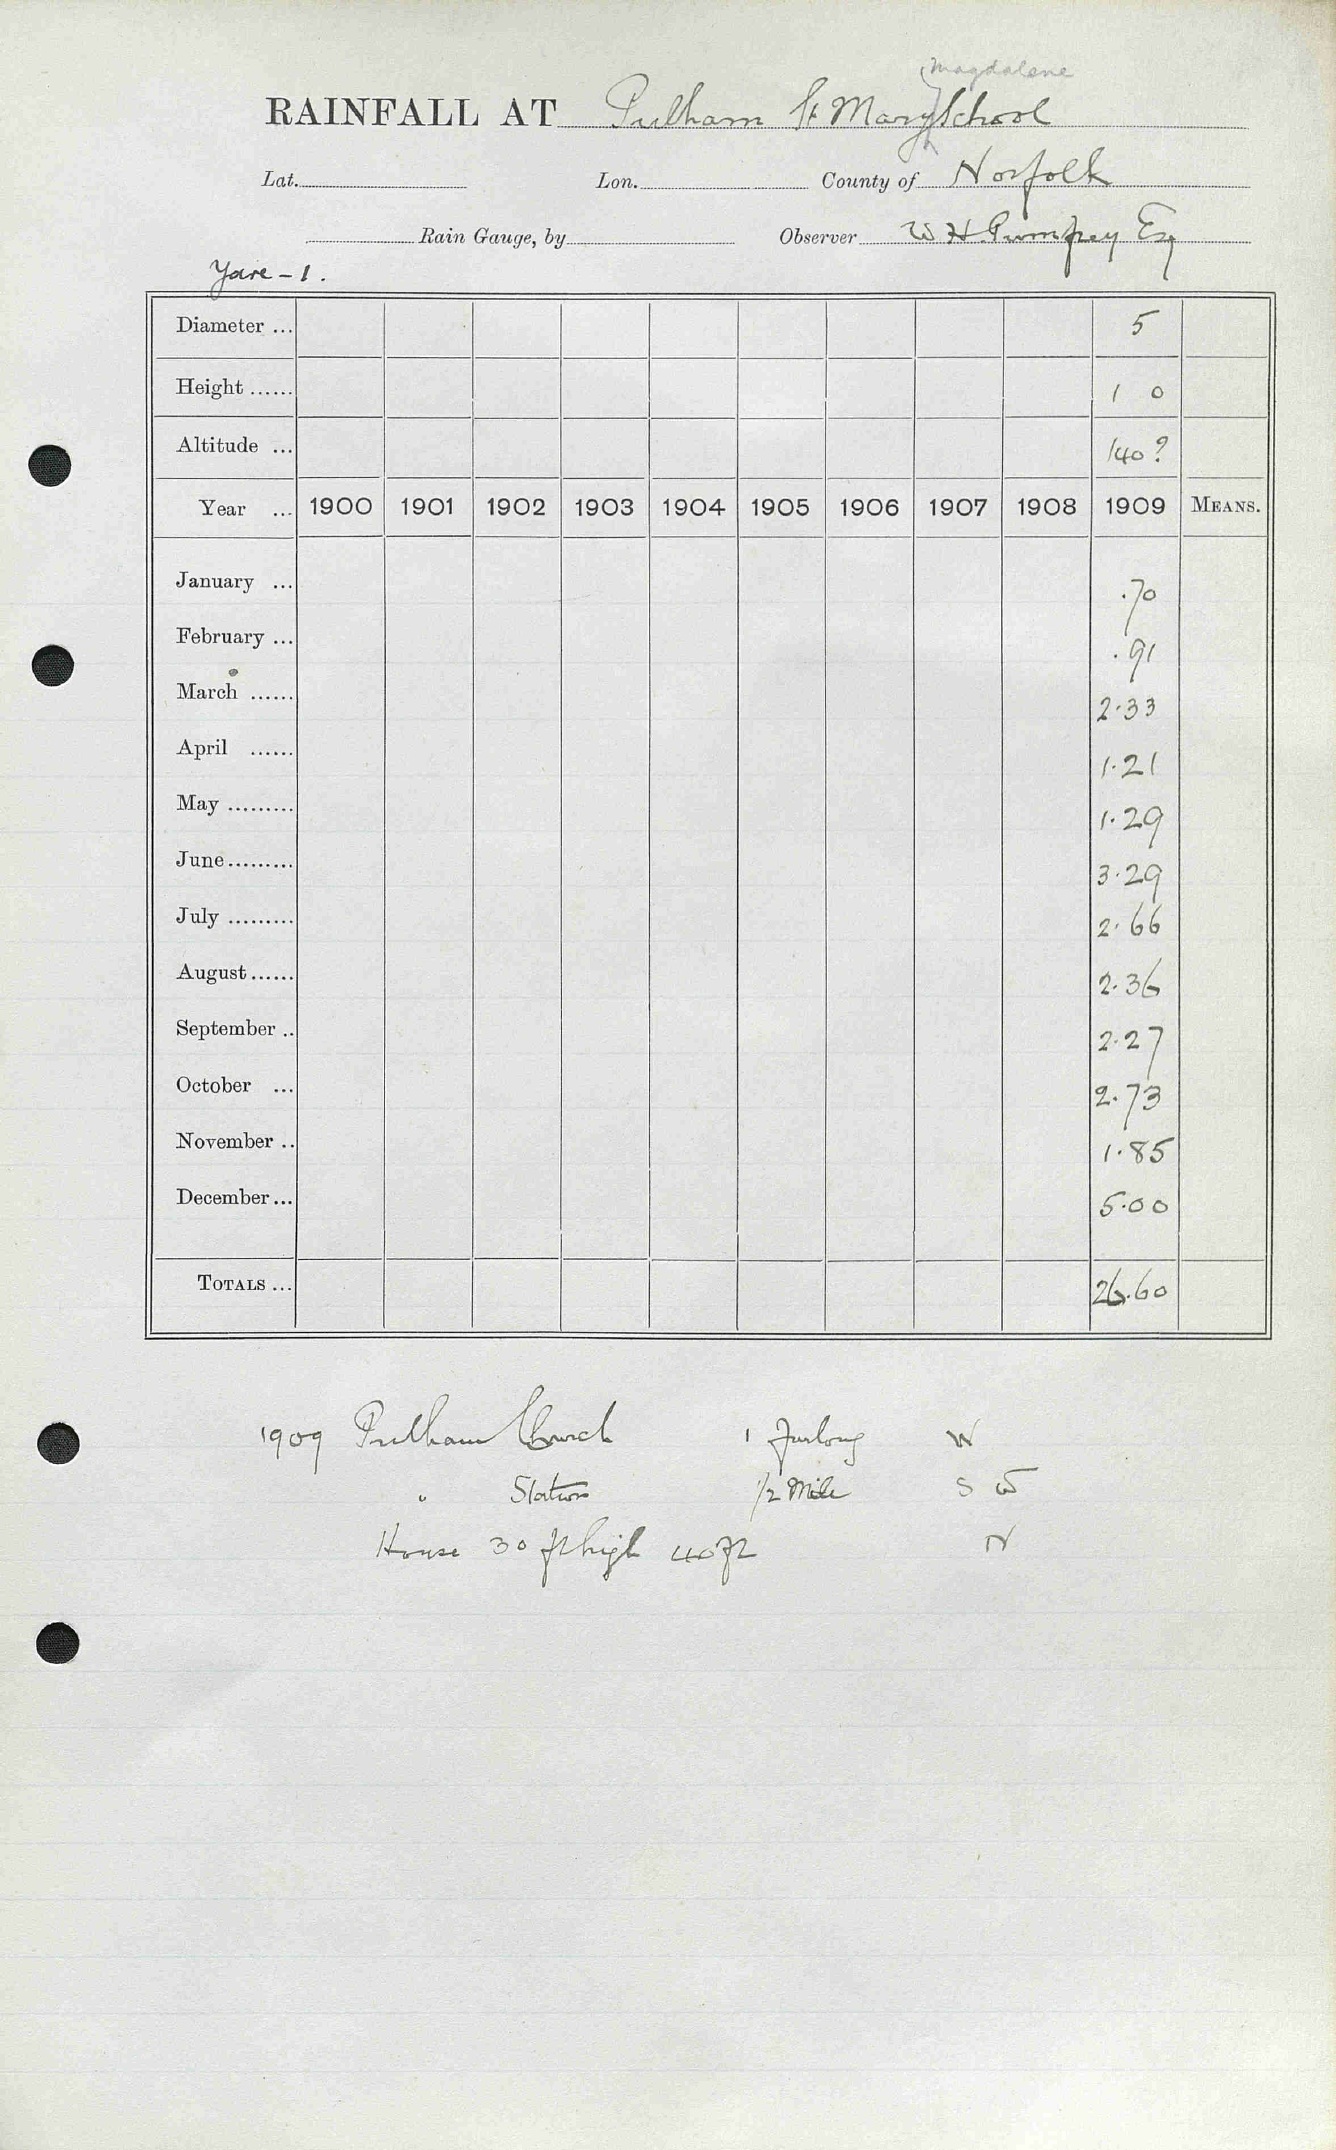 Magdalene
RAINFALL AT Pulham St Mary School
Lat. Lon. County of Norfolk
Rain Gauge, by Observer W H Pumfrey Esq
Yare - 1.
Diameter ... 5
Height ...... 1 0
Altitude ... 140?
Year ... 1900 1901 1902 1903 1904 1905 1906 1907 1908 1909 MEANS.
January ... .70
February ... .91
March ...... 2.33
April ...... 1.21
May ......... 1.29
June ......... 3.29
July ......... 2.66
August ...... 2.36
September .. 2.27
October ... 2.73
November .. 1.85
December ... 5.00
TOTALS ... 26.60
1909 Pulham Church 1 Furlong W
" Station 1/2 Mile S W
House 30 ft high 40 ft N